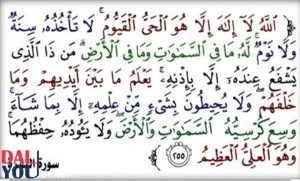 اللَّهُ لَا إِلَٰهَ إِلَّا هُوَ الْحَيُّ الْقَيُّومُ ۚ لَا تَأْخُذُهُ سِنَةٌ
وَلَا نَوْمٌ ۚ لَهُ مَا فِي السَّمَاوَاتِ وَمَا فِي الْأَرْضِ ۗ مَن ذَا الَّذِي
يَشْفَعُ عِندَهُ إِلَّا بِإِذْنِهِ ۚ يَعْلَمُ مَا بَيْنَ أَيْدِيهِمْ وَمَا
خَلْفَهُمْ ۖ وَلَا يُحِيطُونَ بِشَيْءٍ مِّنْ عِلْمِهِ إِلَّا بِمَا شَاءَ ۚ
وَسِعَ كُرْسِيُّهُ السَّمَاوَاتِ وَالْأَرْضَ ۖ وَلَا يَئُودُهُ حِفْظُهُمَا ۚ
وَهُوَ الْعَلِيُّ الْعَظِيمُ ﴿٢٥٥﴾
سورة البقرة
DAL
YOU